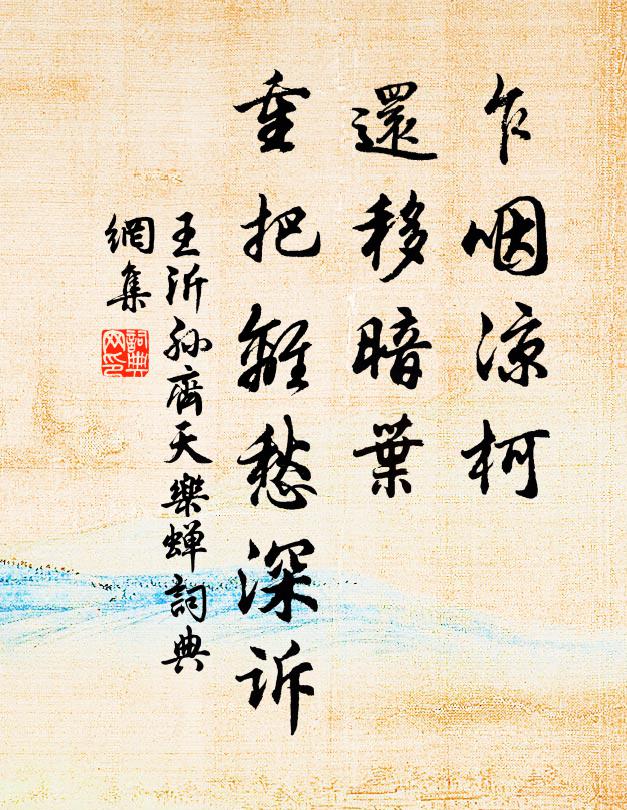 乍咽涼柯
還移暗葉
重把離愁深訴
王沂孙齊天樂蝉詞典
網集
詞典
网印